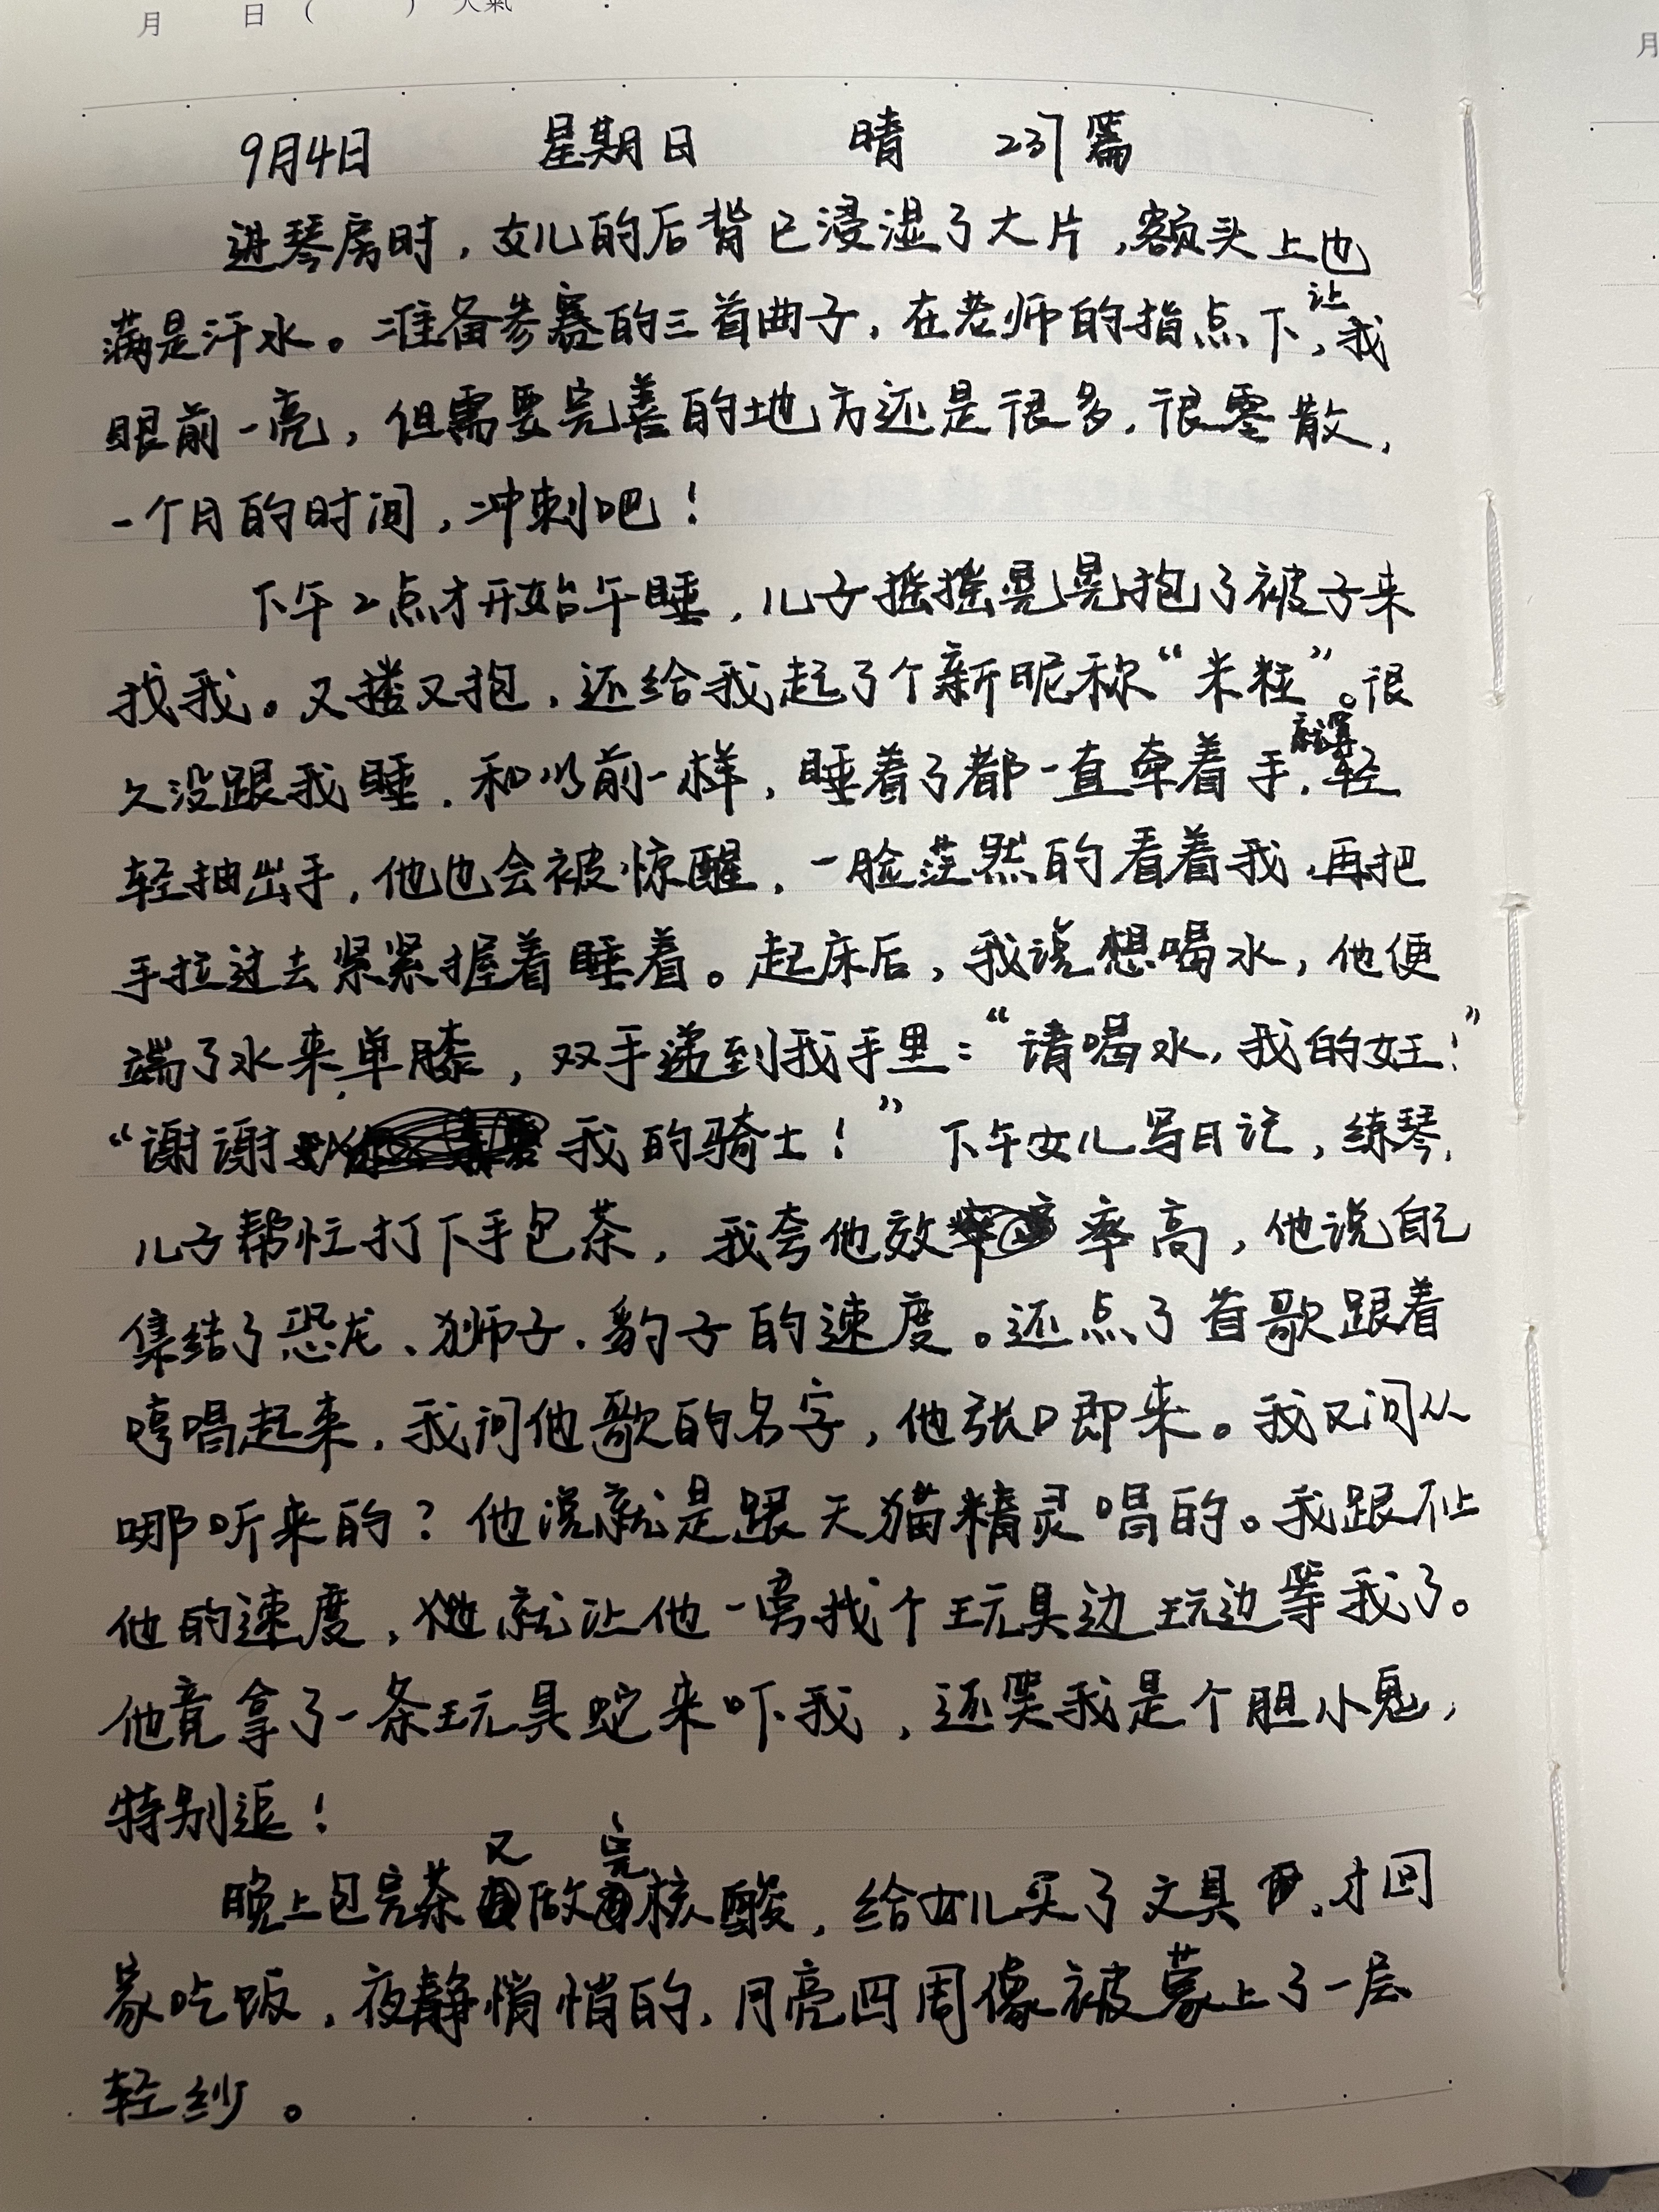 月 日( ) 天氣
月
9月4日 星期日 晴 237篇
进琴房时，女儿的后背已浸湿了大片，额头上也
满是汗水。准备参赛的三首曲子，在老师的指点下，让我
眼前一亮，但需要完善的地方还是很多，很零散，
一个月的时间，冲刺吧！
下午2点才开始午睡，儿子摇摇晃晃抱了被子来
找我。又搂又抱，还给我起了个新昵称“米粒”。很
久没跟我睡，和以前一样，睡着了都一直牵着手，就算轻
轻抽出手，他也会被惊醒，一脸茫然的看着我，再把
手拉过去紧紧握着睡着。起床后，我说想喝水，他便
端了水来单膝，双手递到我手里：“请喝水，我的女王！”
“谢谢我的骑士！” 下午女儿写日记，练琴，
儿子帮忙打下手包茶，我夸他效率高，他说自己
集结了恐龙、狮子、豹子的速度。还点了首歌跟着
哼唱起来，我问他歌的名字，他张口即来。我又问从
哪听来的？他说就是跟天猫精灵唱的。我跟不上
他的速度，就让他一旁找个玩具边玩边等我了。
他竟拿了一条玩具蛇来吓我，还笑我是个胆小鬼，
特别逗！
晚上包完茶又做完核酸，给女儿买了文具，才回
家吃饭，夜静悄悄的，月亮四周像被蒙上了一层
轻纱。